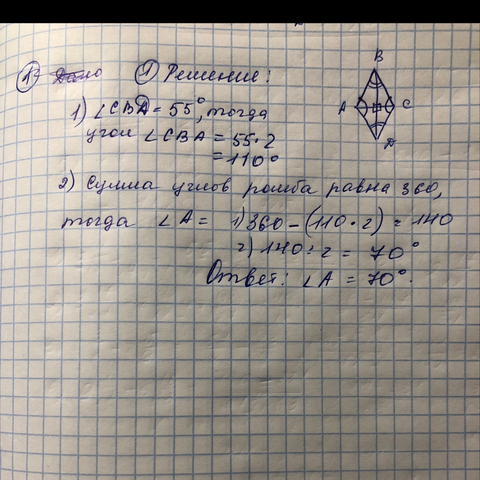 1) Решение:
B
A C
D
1) ∠CBD = 55°, тогда
угол ∠CBA = 55·2
= 110°
2) Сумма углов ромба равна 360,
тогда ∠A = 1) 360 - (110·2) = 140
2) 140 : 2 = 70°
Ответ: ∠A = 70°.